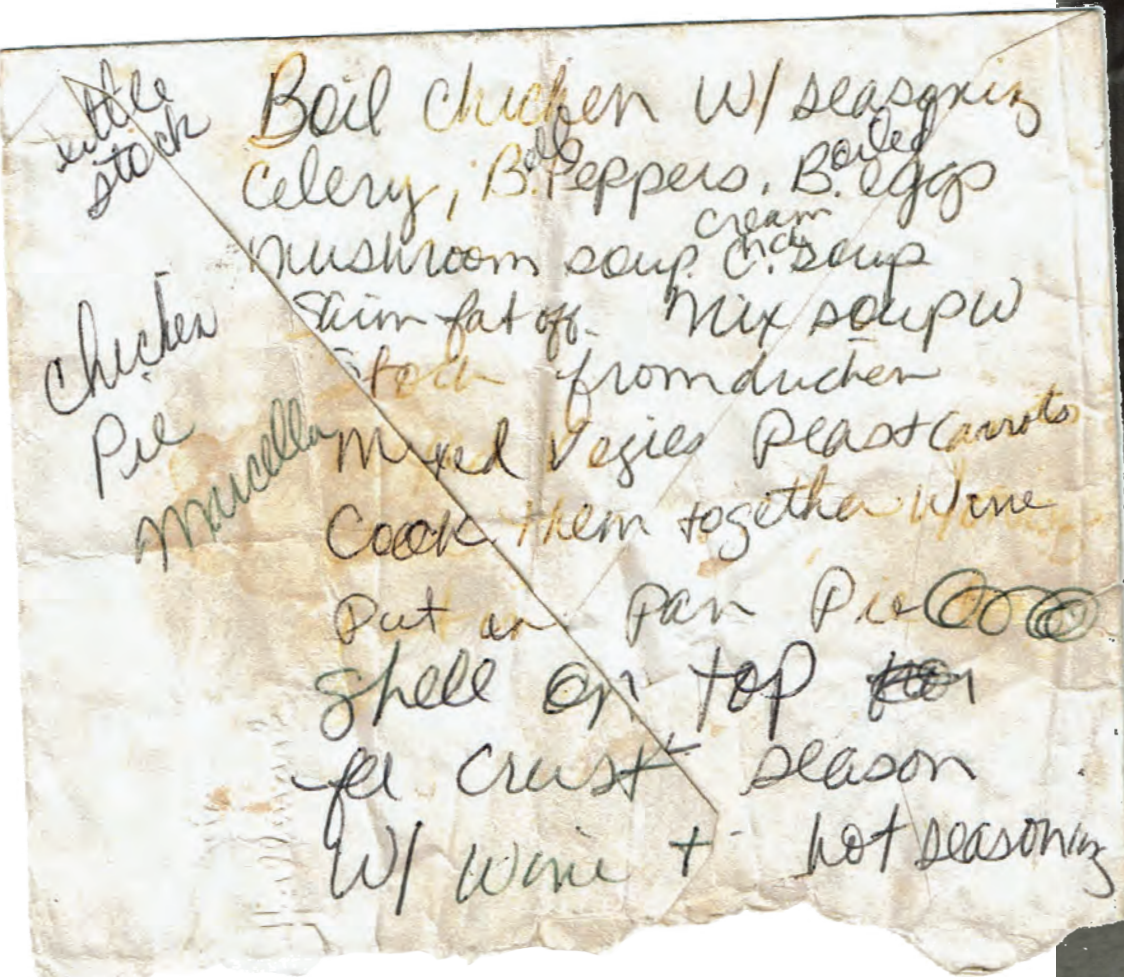 little
stock
Boil chicken W/ seasoning
Celery, B.ell Peppers, B.oiled eggs
mushroom soup. cream C.hck soup
Skim fat off. Mix soup W
Stock from chicken
Chicken
Pie
Marcella
Mixed Vegies Peas + Carrots
Coook them together W/ wine
Put in Pan Pie
Shell on top
for Crust season
W/ wine + hot seasoning